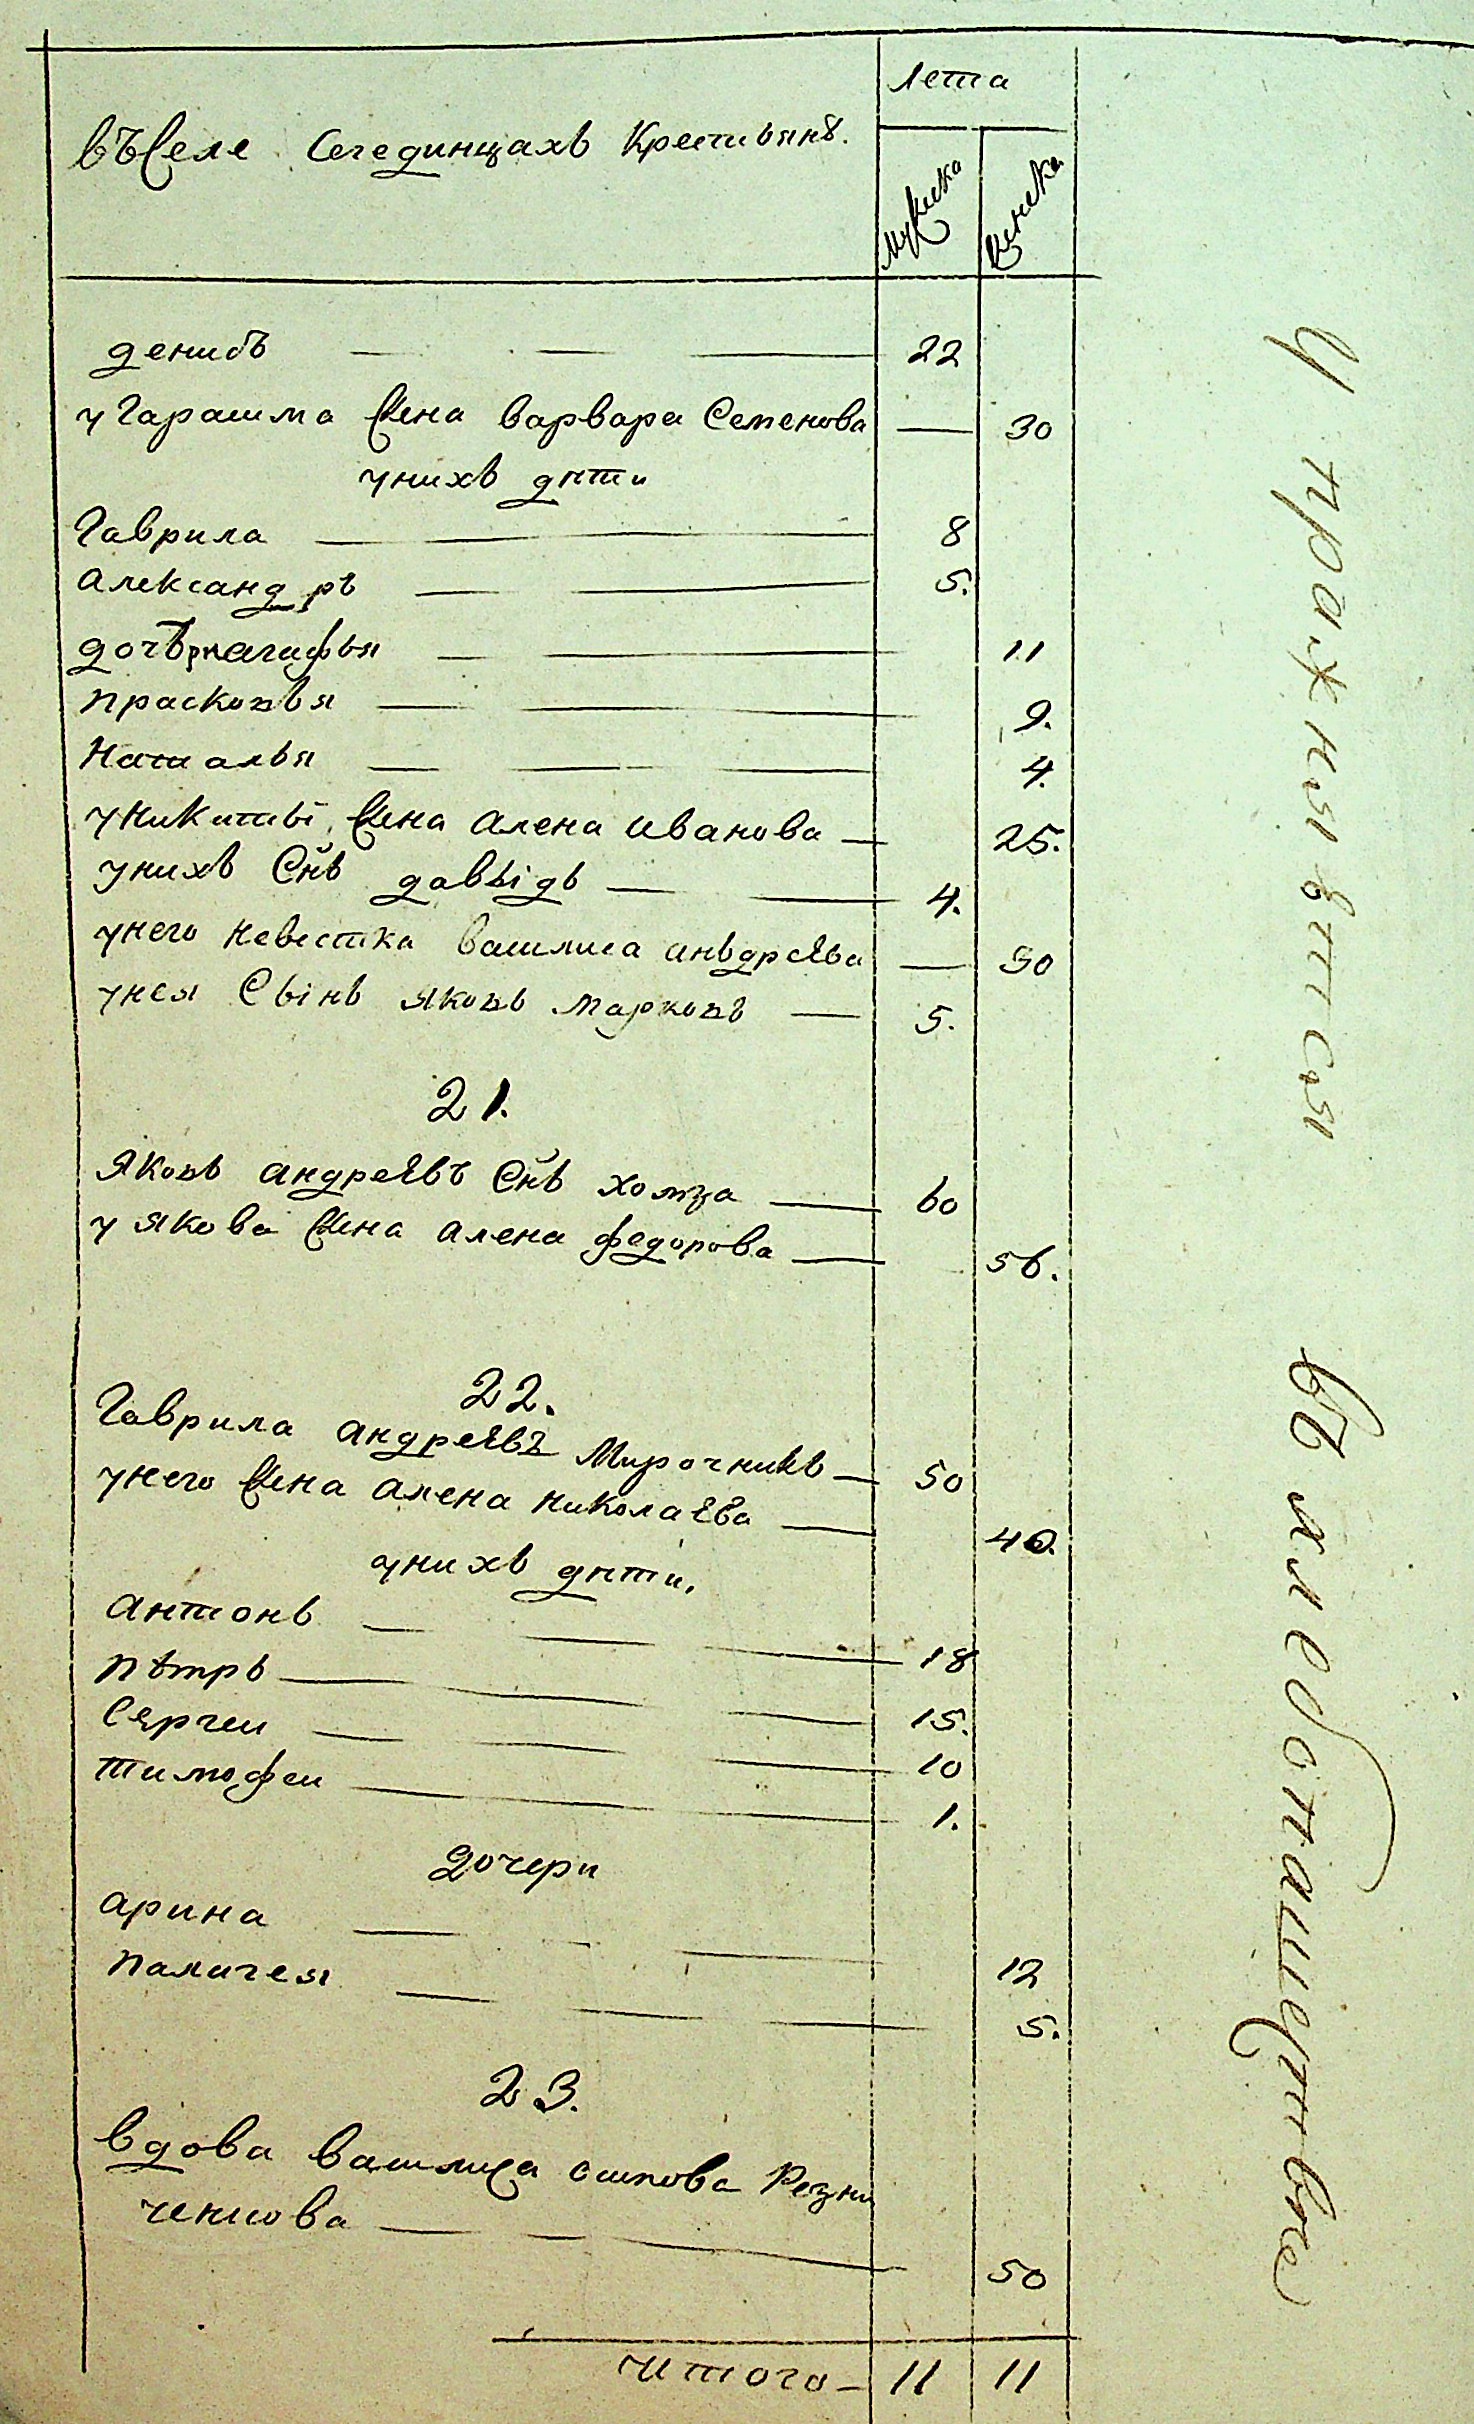 Лета
въ Селе Сегединцахъ Крестьянъ.
Мужеска
Женска
денисъ 22
у Гарасима Жена варвара Семенова 30
у нихъ дѣти
Гаврила 8
Александръ 5.
дочѣри агафья 11
Прасковья 9.
Наталья 4.
у Никиты Жена Алена Иванова 25.
у нихъ Снъ давыдъ 4.
у него невестка василиса аньдреева 30
у нея Сынъ яковъ марковъ 5.
21.
Яковъ андреевъ Снъ 60
у якова Жена Алена федорова 56.
22.
Гаврила андреевъ Мирочникъ 50
у него Жена Алена николаева 40.
у нихъ дѣти.
антонъ 18
пѣтръ 15.
Сергеи 10
тимофеи 1.
дочери
арина 12
палагея 5.
23.
вдова василиса осипова Резни
ченкова 50
итого 11 11
Упражняется
въ хлебопашествѣ